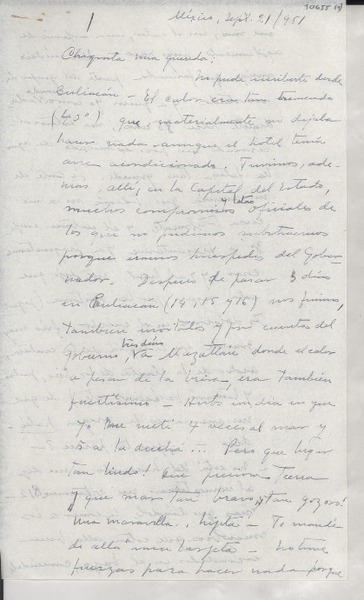 1
10655 (1)
México, Sept. 21/951
Chiquita mía querida:
No pude escribirte desde
Culiacán — El calor era tan tremendo
que, materialmente no dejaba
hacer nada aunque el hotel tenía
aire acondicionado. Tuvimos, ade-
más, allí, en la Capital del Estado,
muchos compromisos oficiales de
los que no pudimos substraernos
porque éramos huéspedes del Gober-
nador. Después de pasar 3 días
en Culiacán (14, 15 y 16) nos fuimos,
también invitados y por cuenta del
Gobierno, tres días a Mazatlán donde el calor
a pesar de la brisa, era también
fuertísimo — Hubo un día en que
yo me metí 4 veces al mar y
a la ducha... Pero qué lugar
tan lindo! Qué preciosa Tierra
y qué mar tan bravo y tan gozoso!
Una maravilla, hijita — Te mandé
de allá una tarjeta — No tuve
fuerzas para hacer nada porque